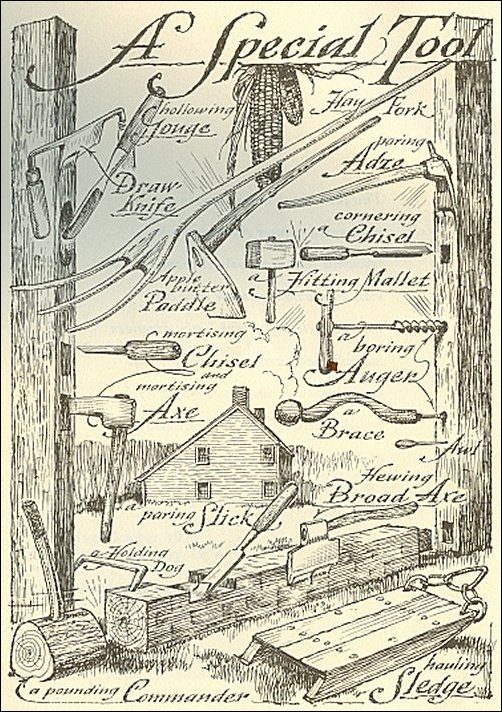 A Special Tool
hollowing
Gouge
Hay Fork
paring
Adze
Draw-
Knife
cornering
a Chisel
Apple
butter
Paddle
a Fitting Mallet
mortising
Chisel
and
mortising
Axe
a
boring
Auger
a
Brace
Awl
Hewing
Broad Axe
a
paring Slick
a Holding
Dog
a pounding Commander
hauling
Sledge